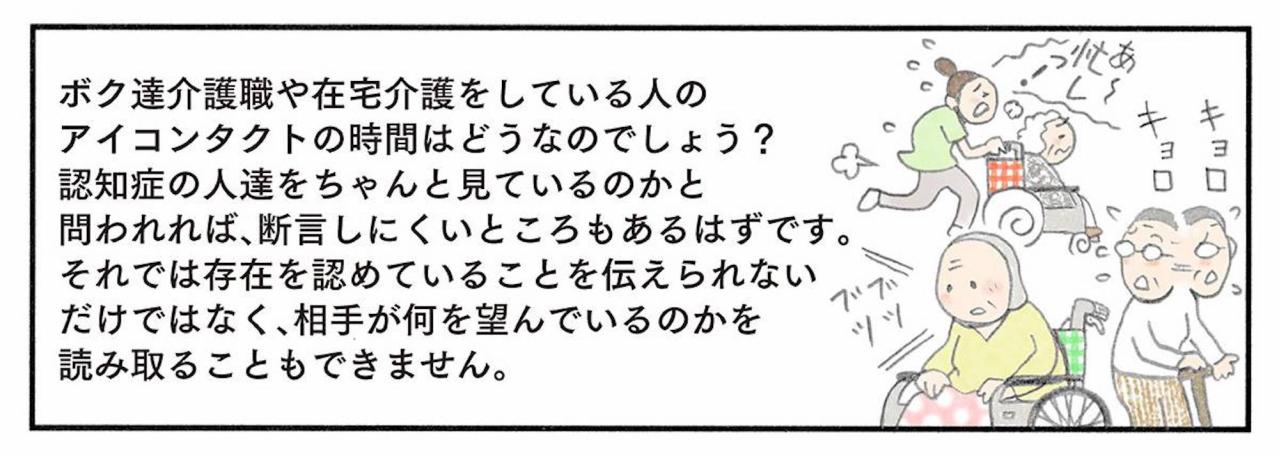 ボク達介護職や在宅介護をしている人の
アイコンタクトの時間はどうなのでしょう？
認知症の人達をちゃんと見ているのかと
問われれば、断言しにくいところもあるはずです。
それでは存在を認めていることを伝えられない
だけではなく、相手が何を望んでいるのかを
読み取ることもできません。
あ〜
忙し
っ!
キョロ
キョロ
ブツ
ブツ